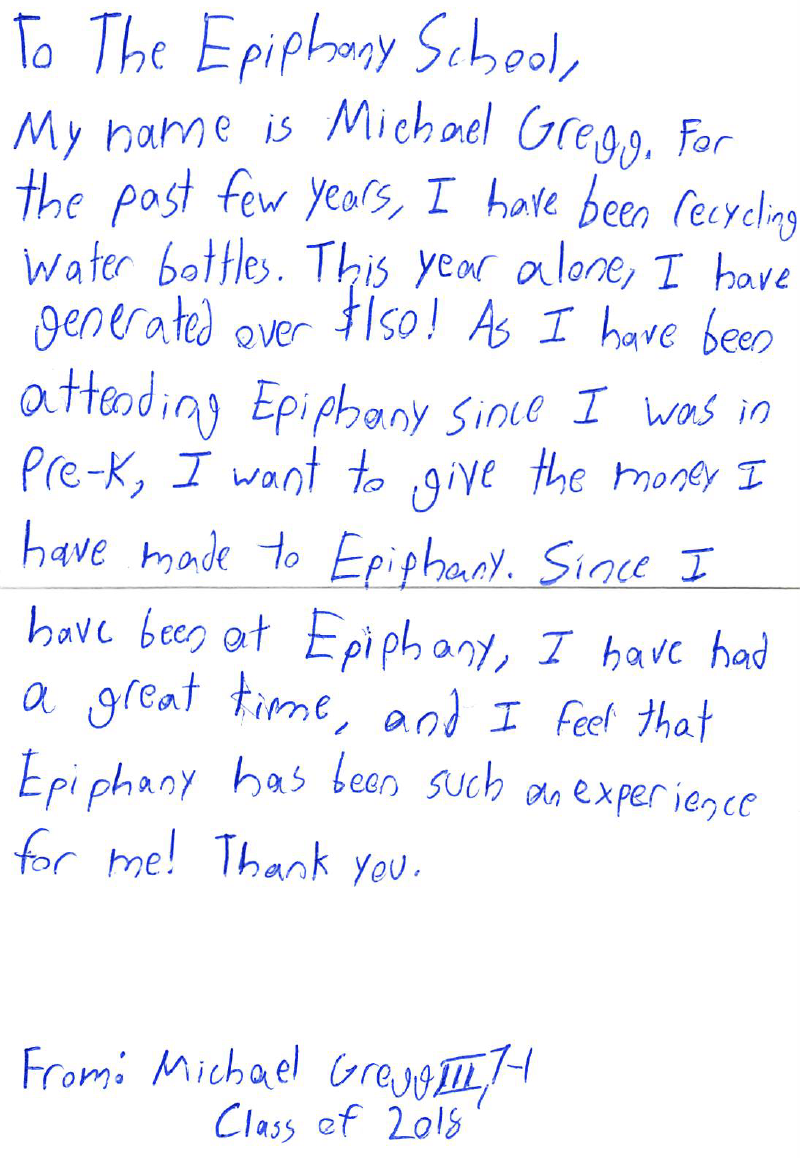 To The Epiphany School,
My name is Michael Gregg. For
the past few years, I have been recycling
water bottles. This year alone, I have
generated over $150! As I have been
attending Epiphany since I was in
Pre-K, I want to give the money I
have made to Epiphany. Since I
have been at Epiphany, I have had
a great time, and I feel that
Epiphany has been such an experience
for me! Thank you.
From: Michael Gregg III, 7-1
Class of 2018